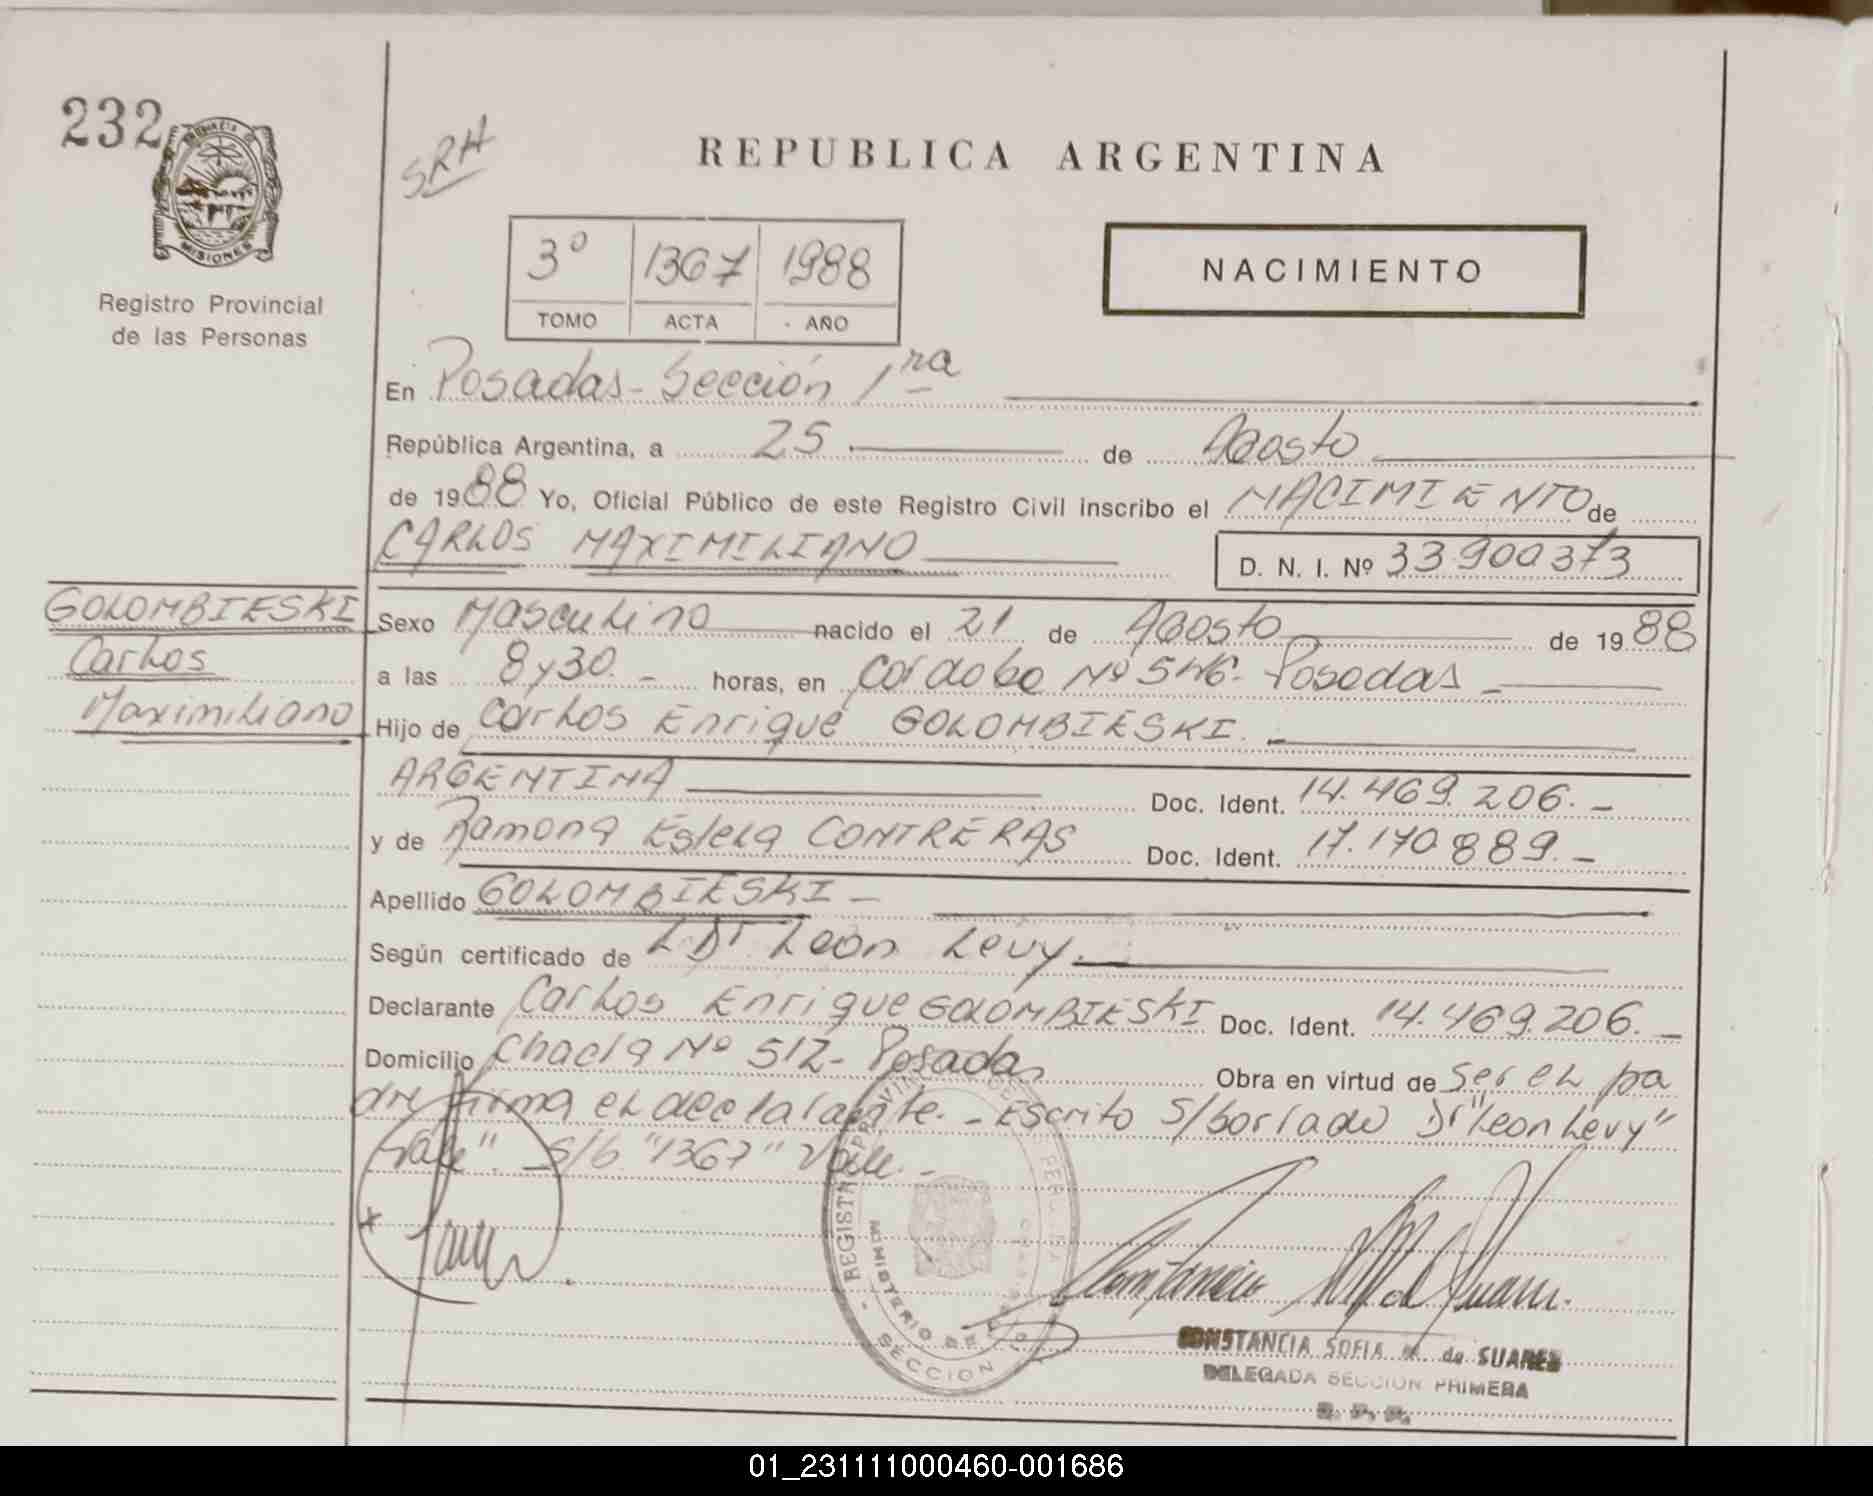 232
PROVINCIA DE
MISIONES
Registro Provincial
de las Personas
SRH
REPUBLICA ARGENTINA
3º 1367 1988
TOMO ACTA AÑO
NACIMIENTO
En Posadas - Sección 1ra
República Argentina, a 25 de Agosto
de 1988 Yo, Oficial Público de este Registro Civil inscribo el NACIMIENTO de
CARLOS MAXIMILIANO D. N. I. Nº 33900373
GOLOMBIESKI
Carlos
Maximiliano
Sexo Masculino nacido el 21 de Agosto de 1988
a las 8 y 30. - horas, en Cordoba Nº 546 - Posadas -
Hijo de Carlos Enrique GOLOMBIESKI. -
ARGENTINA Doc. Ident. 14.469.206. -
y de Ramona Estela CONTRERAS Doc. Ident. 17.170.889. -
Apellido GOLOMBIESKI -
Según certificado de Dr Leon Levy. -
Declarante Carlos Enrique GOLOMBIESKI Doc. Ident. 14.469.206. -
Domicilio Chacra Nº 512 - Posadas Obra en virtud de ser el pa
dre firma el declarante. - Escrito s/borrado Dr "Leon Levy"
Vale". s/b "1367" Vale. -
REGISTRO PROVINCIAL DE LAS PERSONAS
MINISTERIO DE
SECCION
CONSTANCIA SOFIA M. de SUAREZ
DELEGADA SECCION PRIMERA
R. P. P.
01_231111000460-001686